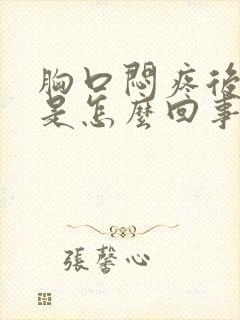 胸口悶疼後
是怎麼回事
張馨心